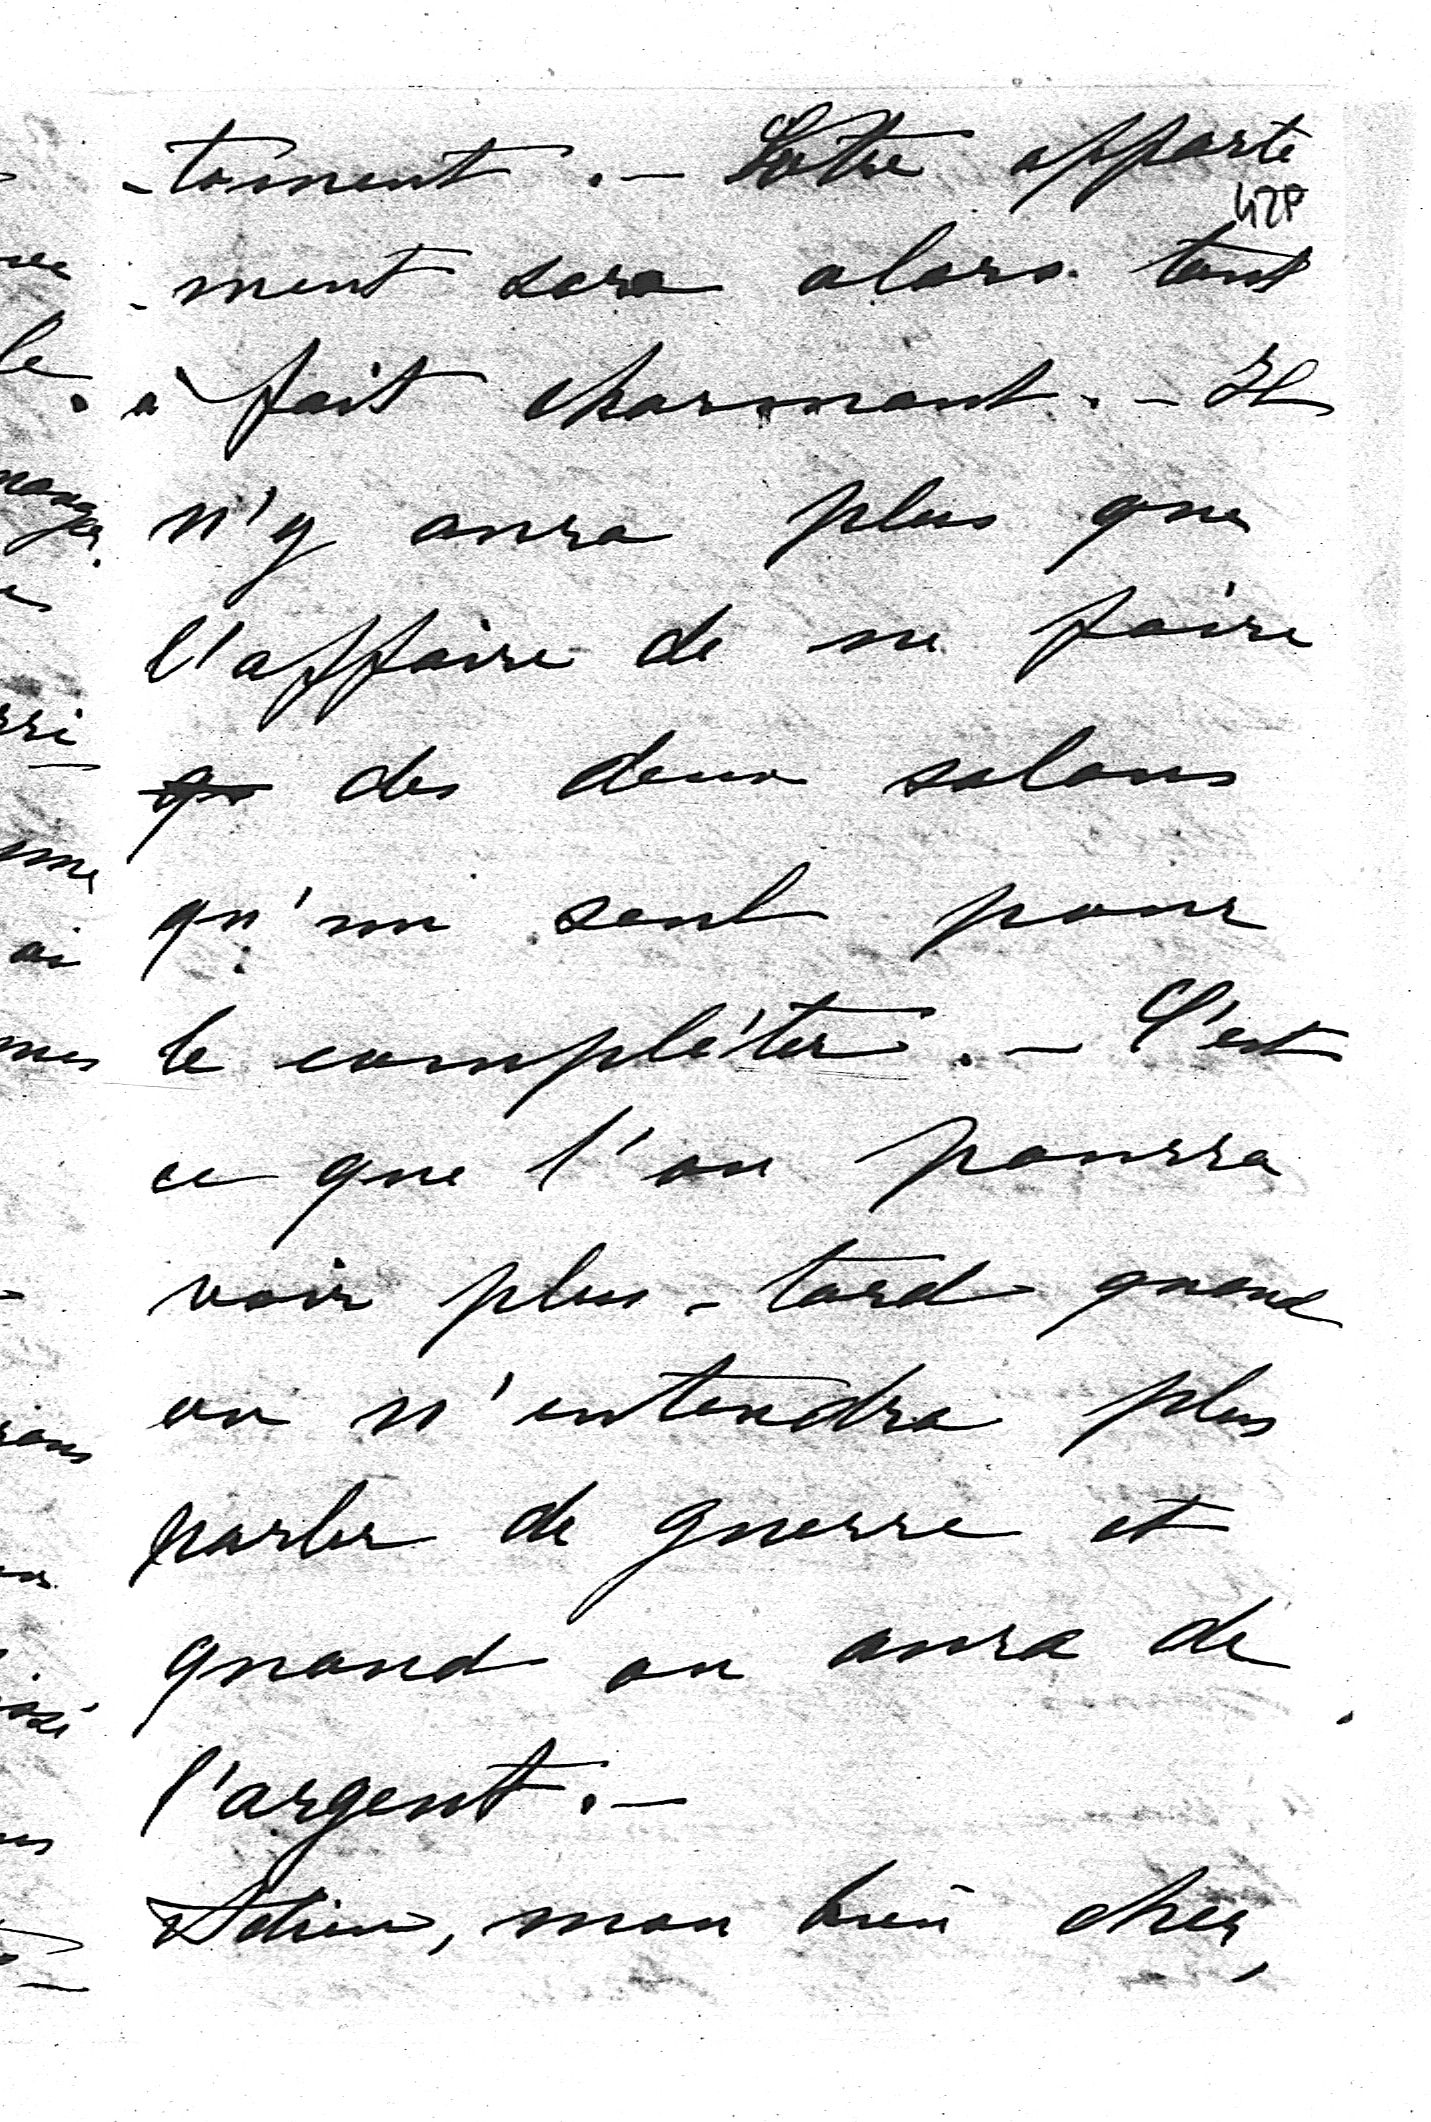 -tement .— Notre apparte
428
-ment sera alors tout
à fait charmant .— Il
n'y aura plus que
l'affaire de ne faire
des deux salons
qu'un seul pour
le compléter .— C'est
ce que l'on pourra
voir plus-tard quand
on n'entendra plus
parler de guerre et
quand on aura de
l'argent .—
Adieu, mon bien cher,